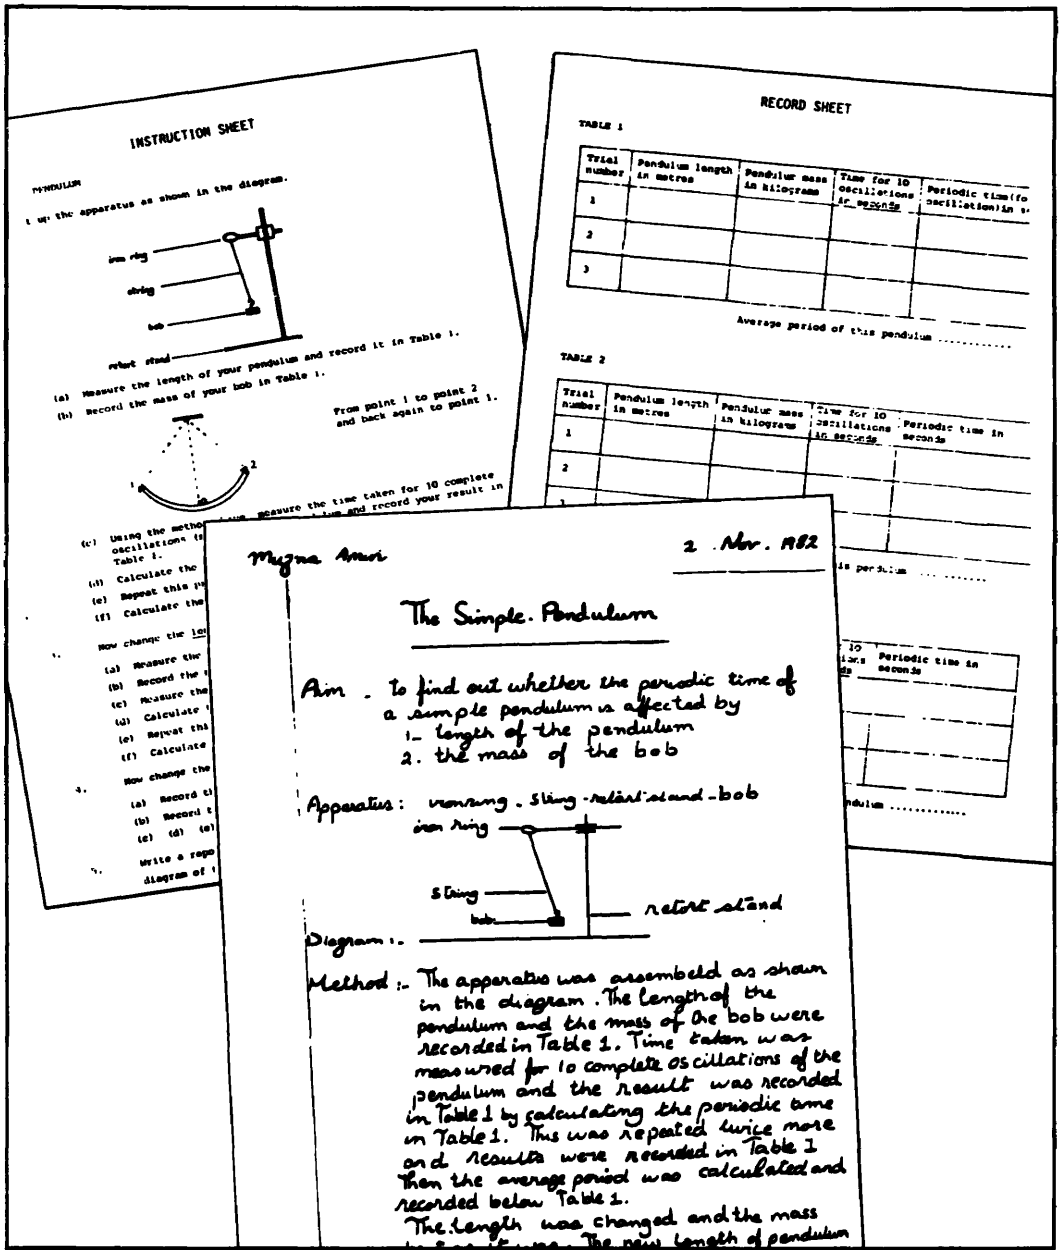 INSTRUCTION SHEET
PENDULUM
t up the apparatus as shown in the diagram.
iron ring
string
bob
retort stand
(a) Measure the length of your pendulum and record it in Table 1.
(b) Record the mass of your bob in Table 1.
From point 1 to point 2
and back again to point 1.
1
2
(c) Using the metho measure the time taken for 10 complete
oscillations and record your result in
Table 1.
(d) Calculate the
(e) Repeat this
(f) Calculate the
Now change the
(a) Measure the
(b) Record the
(c) Measure the
(d) Calculate
(e) Repeat thi
(f) Calculate
4. Now change the
(a) Record t
(b) Record t
(c) (d) (e)
5. Write a repo
diagram of
RECORD SHEET
TABLE 1
Trial number Pendulum length in metres Pendulum mass in kilograms Time for 10 oscillations in seconds Periodic time(fo oscillation)in
1
2
3
Average period of this pendulum ............
TABLE 2
Trial number Pendulum length in metres Pendulum mass in kilograms Time for 10 oscillations in seconds Periodic time in seconds
1
2
is pendulum
10 Periodic time in
seconds
ndulum .............
2 Nov. 1982
The Simple Pendulum
Aim - to find out whether the periodic time of
a simple pendulum is affected by
1- length of the pendulum
2. the mass of the bob
Apparatus: string - retort stand - bob
iron ring
string
bob
retort stand
Diagram:-
Method:- The apparatus was assembeld as shown
in the diagram. The length of the
pendulum and the mass of the bob were
recorded in Table 1. Time taken was
measured for 10 complete oscillations of the
pendulum and the result was recorded
in Table 1 by calculating the periodic time
in Table 1. This was repeated twice more
and results were recorded in Table 1
Then the average period was calculated and
recorded below Table 1.
The length was changed and the mass
The new length of pendulum